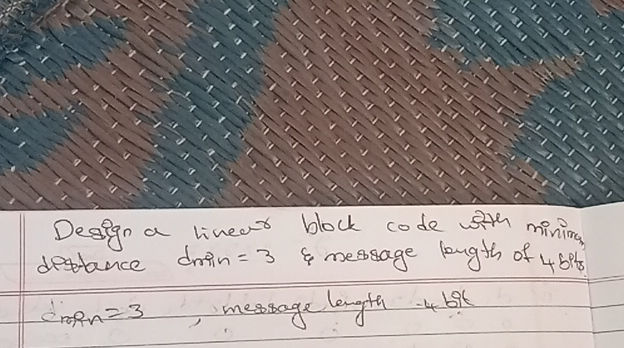 Design a linear block code with minimum
distance dmin = 3 & message length of 4 bits
dmin = 3 , message length - 4 bit